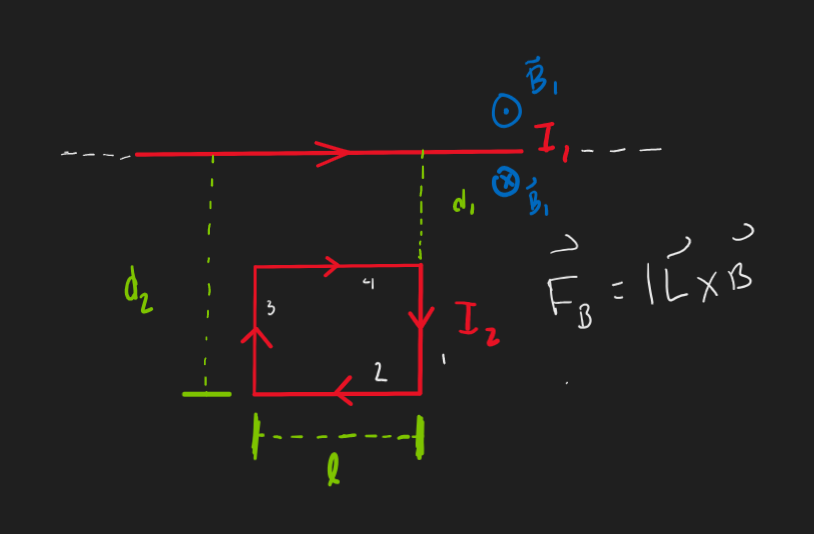 B⃗₁
I₁
B⃗₁
d₁
d₂
4
3
I₂
1
2
F⃗_B = IL⃗ × B⃗
l